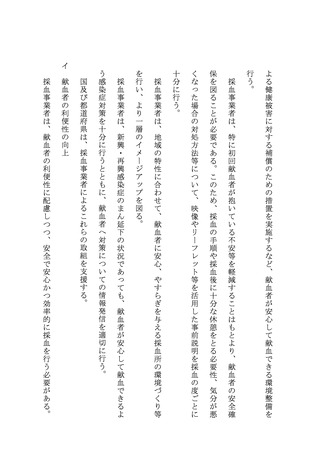 よる健康被害に対する補償のための措置を実施するなど、献血者が安心して献血できる環境整備を
行う。
採血事業者は、特に初回献血者が抱いている不安等を軽減することはもとより、献血者の安全確
保を図ることが必要である。このため、採血の手順や採血後に十分な休憩をとる必要性、気分が悪
くなった場合の対処方法等について、映像やリーフレット等を活用した事前説明を採血の度ごとに
十分に行う。
採血事業者は、地域の特性に合わせて、献血者に安心、やすらぎを与える採血所の環境づくり等
を行い、より一層のイメージアップを図る。
採血事業者は、新興・再興感染症のまん延下の状況であっても、献血者が安心して献血できるよ
う感染症対策を十分に行うとともに、献血者へ対策についての情報発信を適切に行う。
国及び都道府県は、採血事業者によるこれらの取組を支援する。
イ 献血者の利便性の向上
採血事業者は、献血者の利便性に配慮しつつ、安全で安心かつ効率的に採血を行う必要がある。